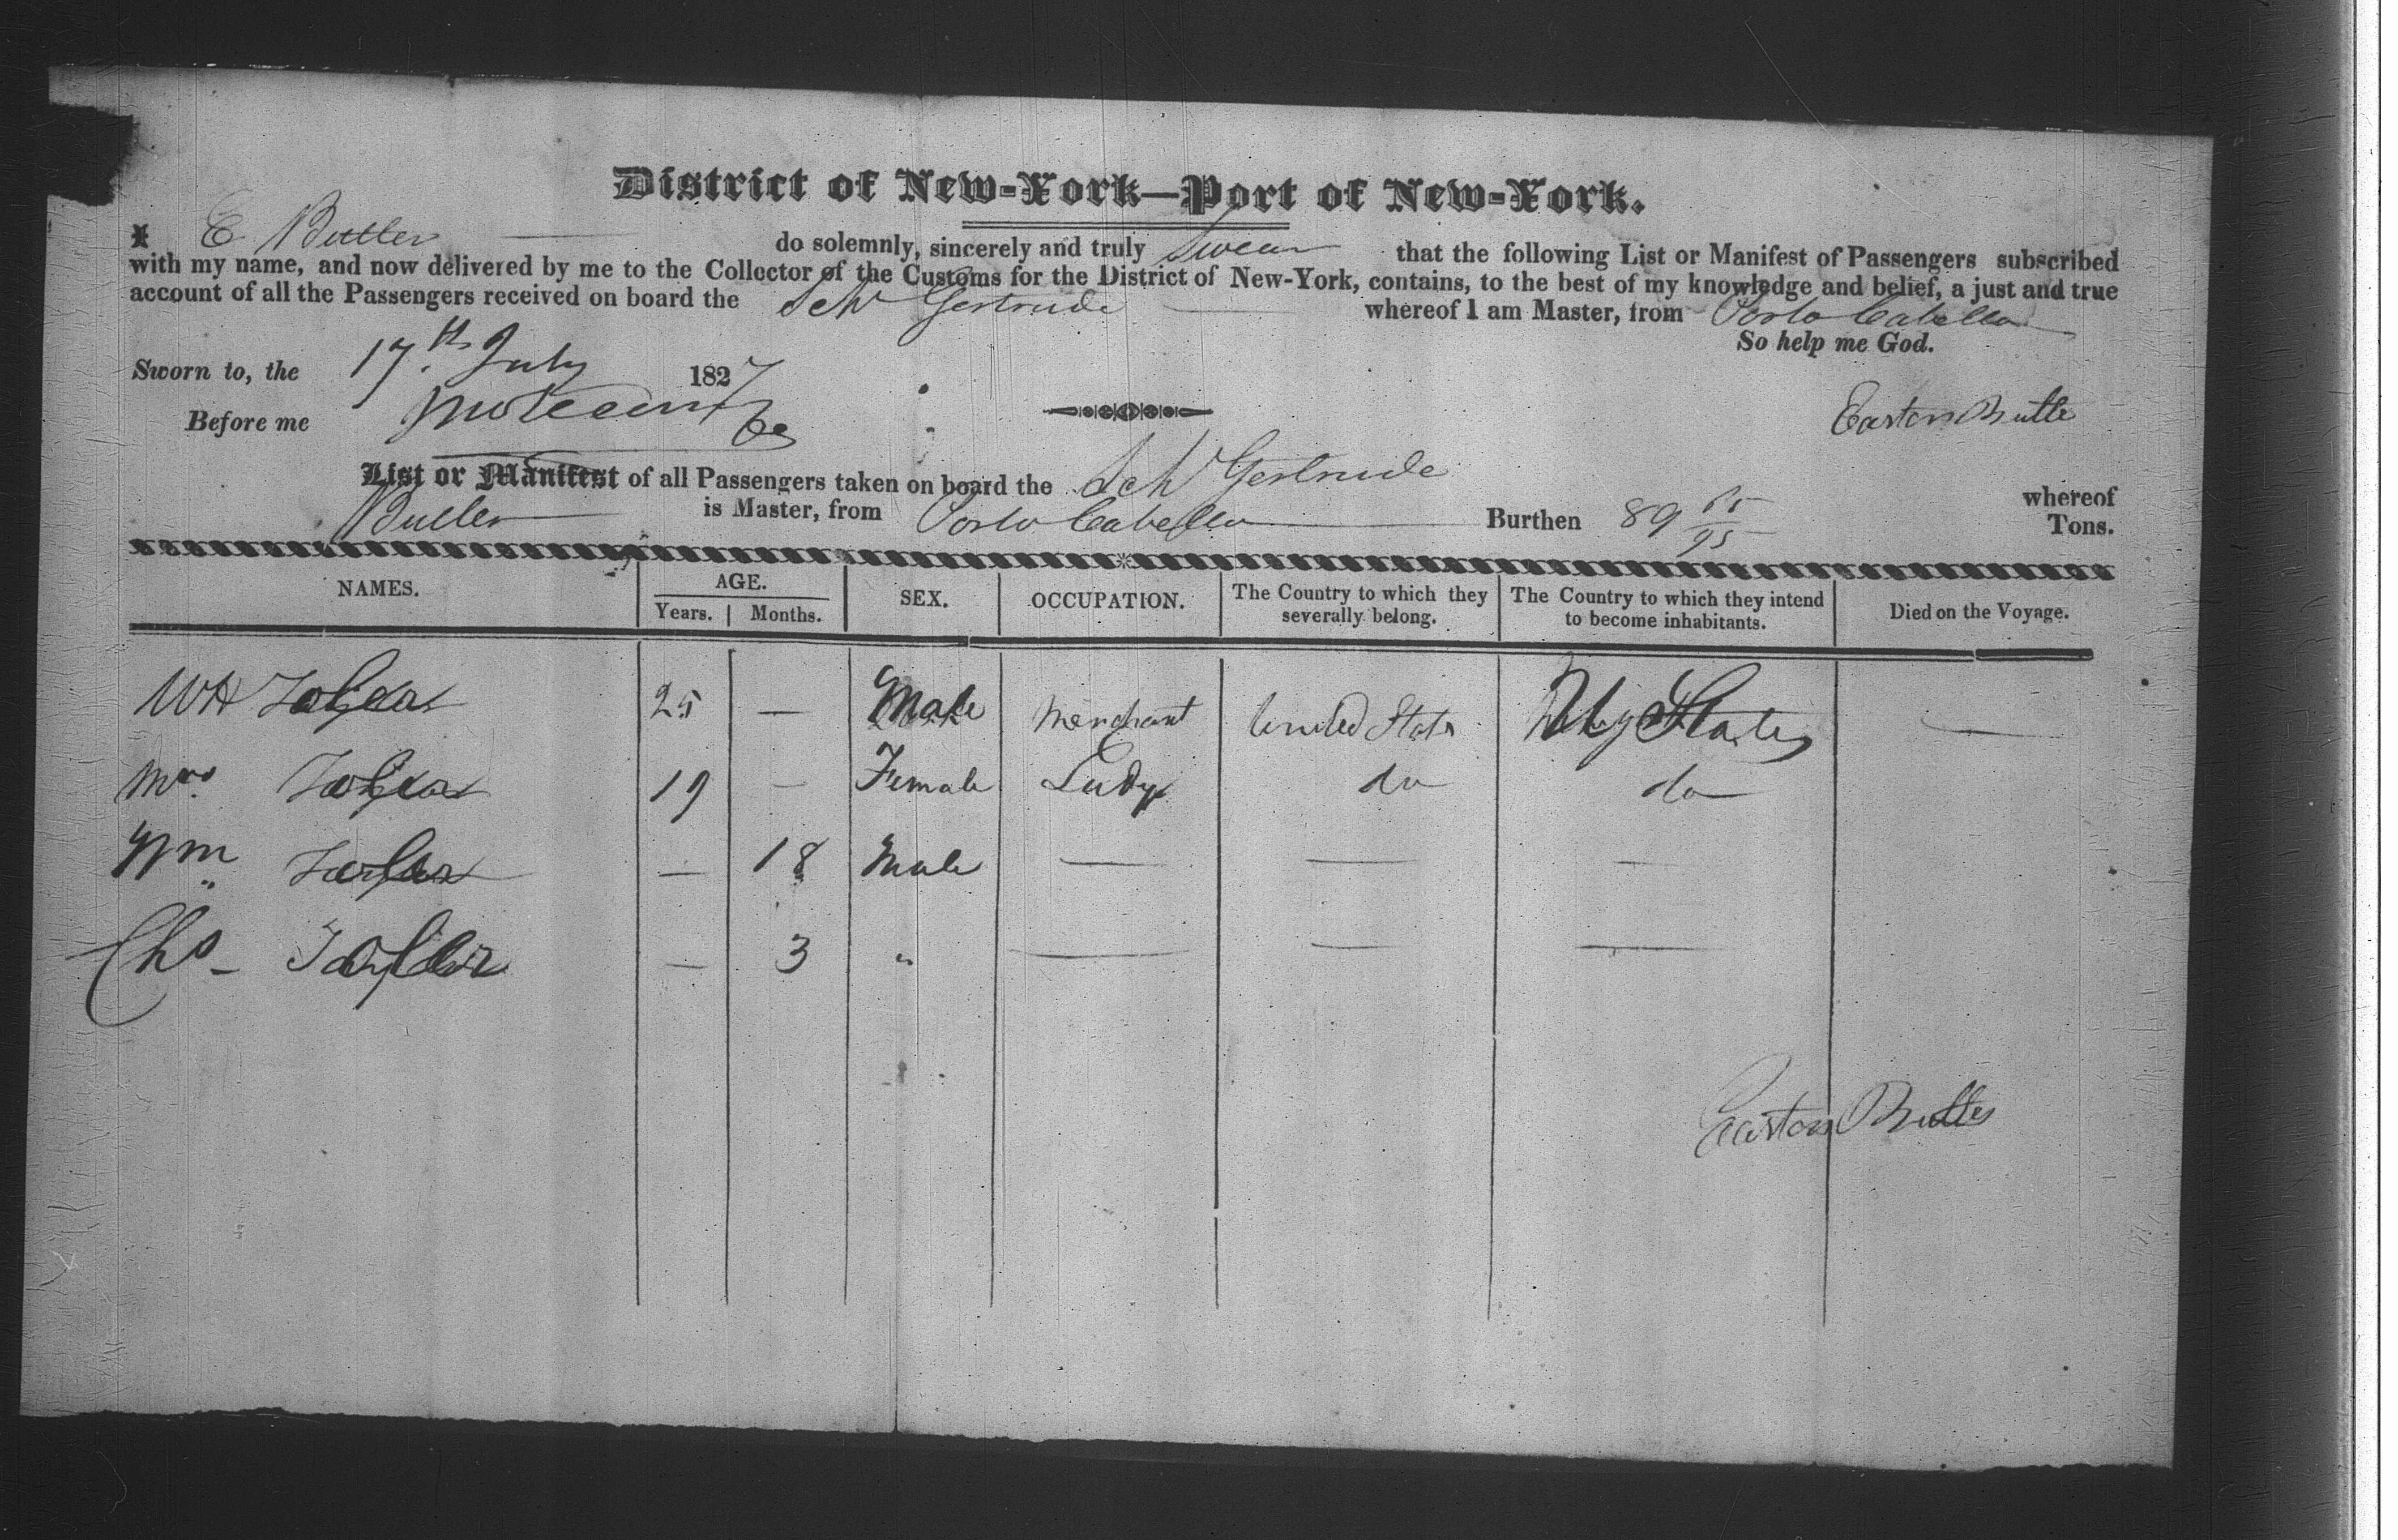 District of New-York—Port of New-York.
I E Butler do solemnly, sincerely and truly Swear that the following List or Manifest of Passengers subscribed
with my name, and now delivered by me to the Collector of the Customs for the District of New-York, contains, to the best of my knowledge and belief, a just and true
account of all the Passengers received on board the Schr Gertrude whereof I am Master, from Porto Cabello
So help me God.
Sworn to, the 17.th July 1827
Before me
Easton Butler
List or Manifest of all Passengers taken on board the Schr Gertrude whereof
Butler is Master, from Porto Cabello Burthen 89 65/95 Tons.
NAMES. AGE. SEX. OCCUPATION. The Country to which they severally belong. The Country to which they intend to become inhabitants. Died on the Voyage.
Years. Months.
WH Taylor 25 — Male Merchant United States States —
Mrs. Taylor 19 — Female Lady do do
Wm Taylor — 18 Male — — —
Chs Taylor — 3 " — — —
Easton Butler